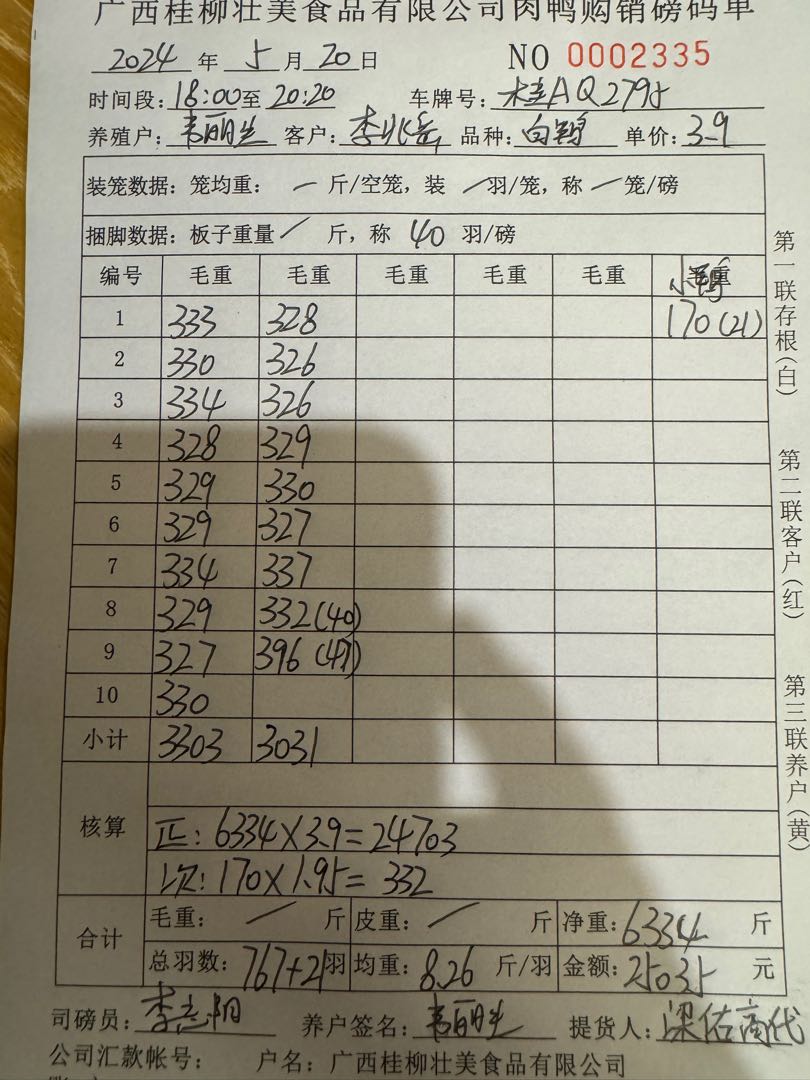 广西桂柳壮美食品有限公司肉鸭购销磅码单
2024 年 5 月 20 日 NO 0002335
时间段: 18:00至 20:20 车牌号: 桂AQ2795
养殖户: 韦丽 客户: 李兆 品种: 白鸭 单价: 3.9
装笼数据: 笼均重: 一 斤/空笼, 装 / 羽/笼, 称 一 笼/磅
捆脚数据: 板子重量 / 斤, 称 40 羽/磅
编号 毛重 毛重 毛重 毛重 毛重 毛重 小鸭
1 333 328 170(21)
2 330 326
3 334 326
4 328 329
5 329 330
6 329 327
7 334 337
8 329 332(40)
9 327 396(47)
10 330
小计 3303 3031
核算
正: 6334×3.9=24703
次: 170×1.95= 332
合计
毛重: / 斤 皮重: / 斤 净重: 6334 斤
总羽数: 767+21羽 均重: 8.26 斤/羽 金额: 25035 元
司磅员: 李志阳 养户签名: 韦丽 提货人: 梁佑高代
公司汇款帐号: 户名: 广西桂柳壮美食品有限公司
第一联存根(白)
第二联客户(红)
第三联养户(黄)